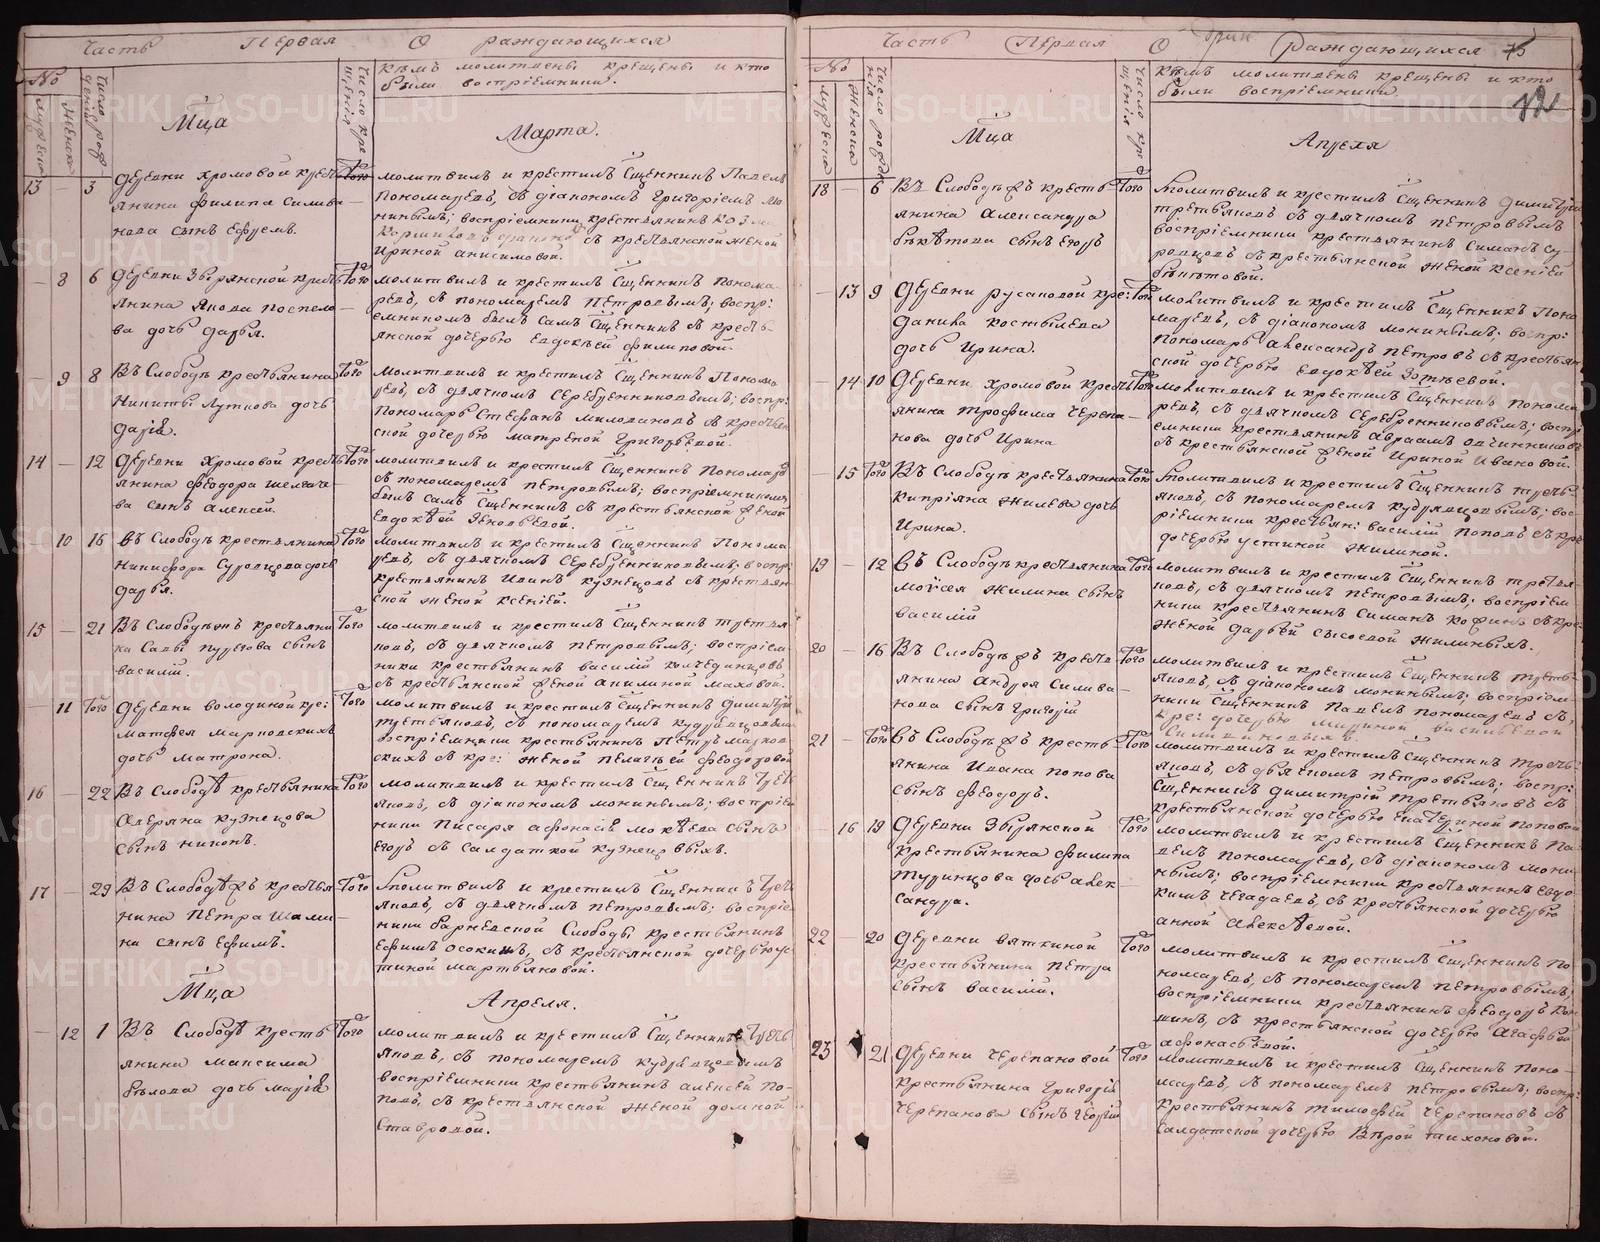 Часть Первая О раждающихся
№
мужеска
женска
число рожденія
число крещенія
кѣмъ молитвены крещены и кто
были воспріемники.
Мца
Марта.
13 — 3 Деревни Хромовой кресть-
янина Филипа Силива-
нова сынъ Ефремъ.
Того
молитвилъ и крестилъ Сщенникъ Павелъ
Пономаревъ, съ діакономъ Григоріемъ Мо
нинымъ; воспріемники крестьянинъ Козма
съ крестьянской женой
Ириной Анисимовой.
— 8 6 Деревни Збѣрянской кресть
янина Якова Поспело-
ва дочь Дарья.
Того
молитвилъ и крестилъ Сщенникъ Понома-
ревъ, съ пономаремъ Петровымъ; воспр:
емникомъ былъ самъ Сщенникъ съ кресть-
янской дочерью Евдокѣей Филиповой.
— 9 8 Въ Слободѣ крестьянина
Никиты Луткова дочь
Дарія.
Того
молитвилъ и крестилъ Сщенникъ Понома
ревъ, съ дьячкомъ Серебренниковымъ; воспр:
Пономарь Стефанъ Миловановъ съ крестьян
ской дочерью Матреной Григорьевой.
14 — 12 Деревни Хромовой кресть
янина Феодора Шелега-
ва сынъ Алексей.
Того
молитвилъ и крестилъ Сщенникъ Пономаревъ
съ пономаремъ Петровымъ; воспріемникомъ
былъ самъ Сщенникъ съ крестьянской женой
Евдокѣей Зеновьевой.
10 16 въ Слободѣ крестьянина
Никифора Суровцова дочь
Дарья.
Того
молитвилъ и крестилъ Сщенникъ Понома
ревъ, съ дьячкомъ Серебренниковымъ; воспр:
крестьянинъ Иванъ Кузнецовъ съ крестьян
ской женой Ксеніей.
15 — 21 Въ Слободѣ крестьяни
на Савы Пургова сынъ
Василій.
Того
молитвилъ и крестилъ Сщенникъ Третья
ковъ, съ дьячкомъ Петровымъ; воспріем-
ники крестьянинъ Василій Колчединцовъ
съ крестьянской женой Акилиной Маховой.
— 11 Того Деревни Володиной кре:
Матфея Марковскихъ
дочь Матрона.
Того
молитвилъ и крестилъ Сщенникъ Димитрій
Третьяковъ, съ пономаремъ Кудрявцовымъ
воспріемники крестьянинъ Петръ Марков
скихъ съ кре: женой Пелагѣей Феодотовой
16 — 22 Въ Слободѣ крестьянина
Аверяна Кузнецова
сынъ Никонъ.
Того
молитвилъ и крестилъ Сщенникъ Треть
яковъ, съ діакономъ Монинымъ; воспріем
ники Писаря Афонасія Мокѣева сынъ
Егоръ съ салдаткой Кузнецовыхъ.
17 — 29 Въ Слободѣ крестья
нина Петра Шами-
на сынъ Ефимъ.
Того
молитвилъ и крестилъ Сщенникъ Треть
яковъ, съ дьячкомъ Петровымъ; воспріем
ники Барневской Слободы крестьянинъ
Ефимъ Осокинъ, съ крестьянской дочерью Ус
тиной Мартьяновой.
Мца
Апреля.
— 12 1 Въ Слободѣ кресть
янина Максима
Бѣлова дочь Марія
Того
молитвилъ и крестилъ Сщенникъ Треть
яковъ, съ пономаремъ Кудрявцовымъ
воспріемники крестьянинъ Алексей По-
повъ, съ крестьянской женой Домной
Ставровой.
Часть Первая О раждающихся 75
№
мужеска
женска
число рожденія
число крещенія
кѣмъ молитвены крещены и кто
были воспріемники.
Мца
Апреля
18 — 6 Въ Слободѣ кресть-
янина Александра
Бекѣтова сынъ Егоръ
Того
молитвилъ и крестилъ Сщенникъ Димитрій
Третьяковъ съ дьячкомъ Петровымъ
воспріемники крестьянинъ Симанъ Су
ровцовъ съ крестьянской женой Ксеніей
Бекѣтовой.
— 13 9 Деревни Русаковой кре:
Данила Костылева
дочь Ирина.
Того
молитвилъ и крестилъ Сщенникъ Поно
маревъ, съ діакономъ Монинымъ; воспр:
пономарь Александръ Петровъ съ крестьян
ской дочерью Евдокѣей
— 14 10 Деревни Хромовой кресть
янина Трофима Черепа-
нова дочь Ирина
Того
молитвилъ и крестилъ Сщенникъ Понома
ревъ, съ дьячкомъ Серебренниковымъ; воспрі
емники крестьянинъ Авраамъ Овчинниковъ
съ крестьянской женой Ириной Ивановой.
15 Того Въ Слободѣ крестьянина
Кипріяна Жилева дочь
Ирина.
Того
молитвилъ и крестилъ Сщенникъ Треть-
яковъ, съ пономаремъ Кудрявцовымъ; вос-
ріемники крестьян: Василій Поповъ съ кре
дочерью Устиной Жилиной.
19 — 12 въ Слободѣ крестьянина
Моисея Жилина сынъ
Василій
Того
молитвилъ и крестилъ Сщенникъ Третья
ковъ, съ дьячкомъ Петровымъ; воспріем
ники крестьянинъ Симанъ съ кре:
женой Дарьей Сысоевой Жилиныхъ.
20 — 16 Въ Слободѣ кресть
янина Андрея Силива-
нова сынъ Григорій
Того
молитвилъ и крестилъ Сщенникъ Треть-
яковъ, съ діакономъ Монинымъ; воспріем-
ники Сщенникъ Павелъ Пономаревъ съ
кре: дочерью Мариной Васильевой
Силивановыхъ.
21 — Того въ Слободѣ кресть-
янина Ивана Попова
сынъ Феодоръ.
Того
молитвилъ и крестилъ Сщенникъ Треть-
яковъ, съ дьячкомъ Петровымъ; воспр:
Сщенникъ Димитрій Третьяковъ съ
крестьянской дочерью Екатериной Поповой
— 16 19 Деревни Збѣрянской
крестьянина Филипа
Туринцова дочь Алек-
сандра.
Того
молитвилъ и крестилъ Сщенникъ Па-
велъ Пономаревъ, съ діакономъ Мони
нымъ; воспріемники крестьянинъ Евдо
кимъ Чегадаевъ, съ крестьянской дочерью
Анной Алексѣевой.
22 — 20 Деревни Вяткиной
крестьянина Петра
сынъ Василій.
Того
молитвилъ и крестилъ Сщенникъ По-
номаревъ, съ пономаремъ Петровымъ;
воспріемники крестьянинъ Феодоръ
съ крестьянской дочерью Агафьей
Афонасьевой.
23 21 Деревни Черепановой
крестьянина Григорія
Черепанова сынъ Георгій
Того
молитвилъ и крестилъ Сщенникъ Поно-
маревъ, съ пономаремъ Петровымъ; воспр:
крестьянинъ Тимофей Черепановъ съ
салдатской дочерью Вѣрой Тихоновой.
METRIKI.GASO-URAL.RU